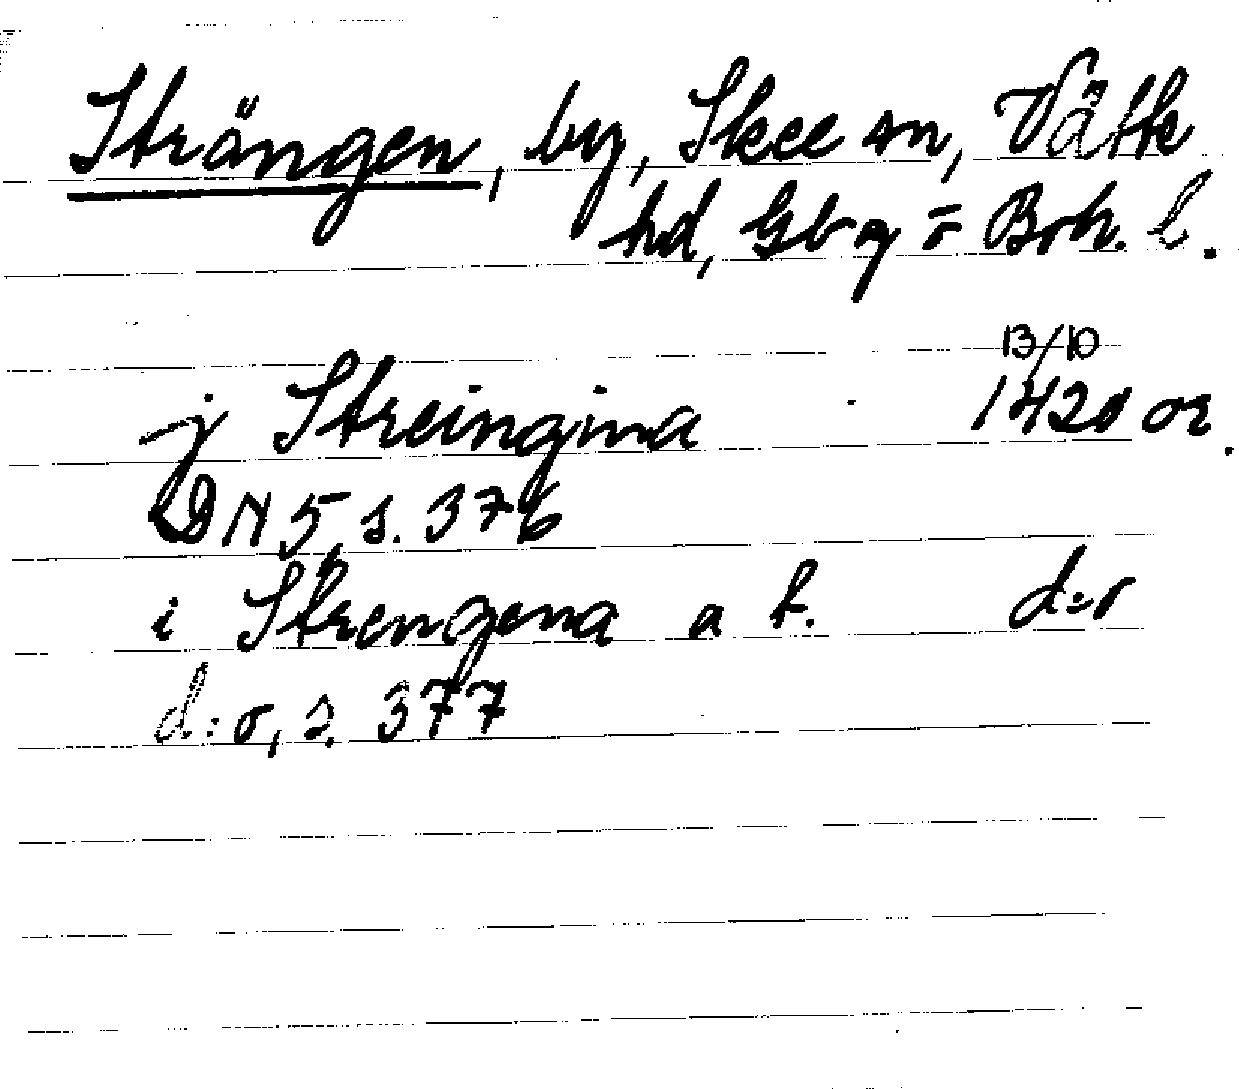 Strängen, by, Skee sn, Vätte
hd, Gbg o Boh. l.
13/10
j Streingina 1420 or.
DN 5 s. 376
i Strengena a f. d:o
d:o, s. 377